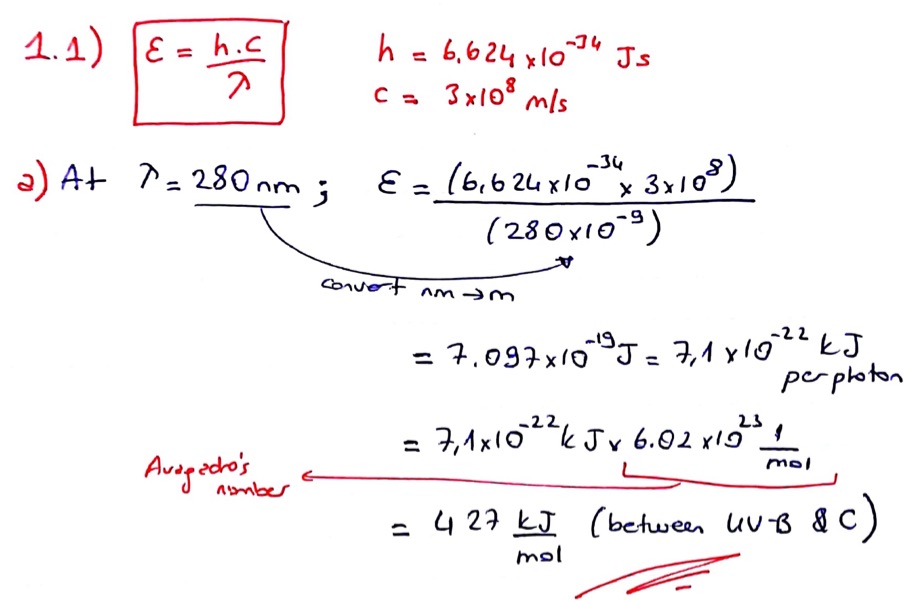 1.1) ε = h.c / λ
h = 6,624 x 10^-34 Js
c = 3x10^8 m/s
a) At λ = 280 nm ; ε = (6,624x10^-34 x 3x10^8) / (280x10^-9)
convert nm → m
= 7.097x10^-19 J = 7,1 x 10^-22 kJ
per photon
= 7,1x10^-22 kJ x 6.02 x10^23 1/mol
Avagadro's
number
= 427 kJ/mol (between UV-B & C)